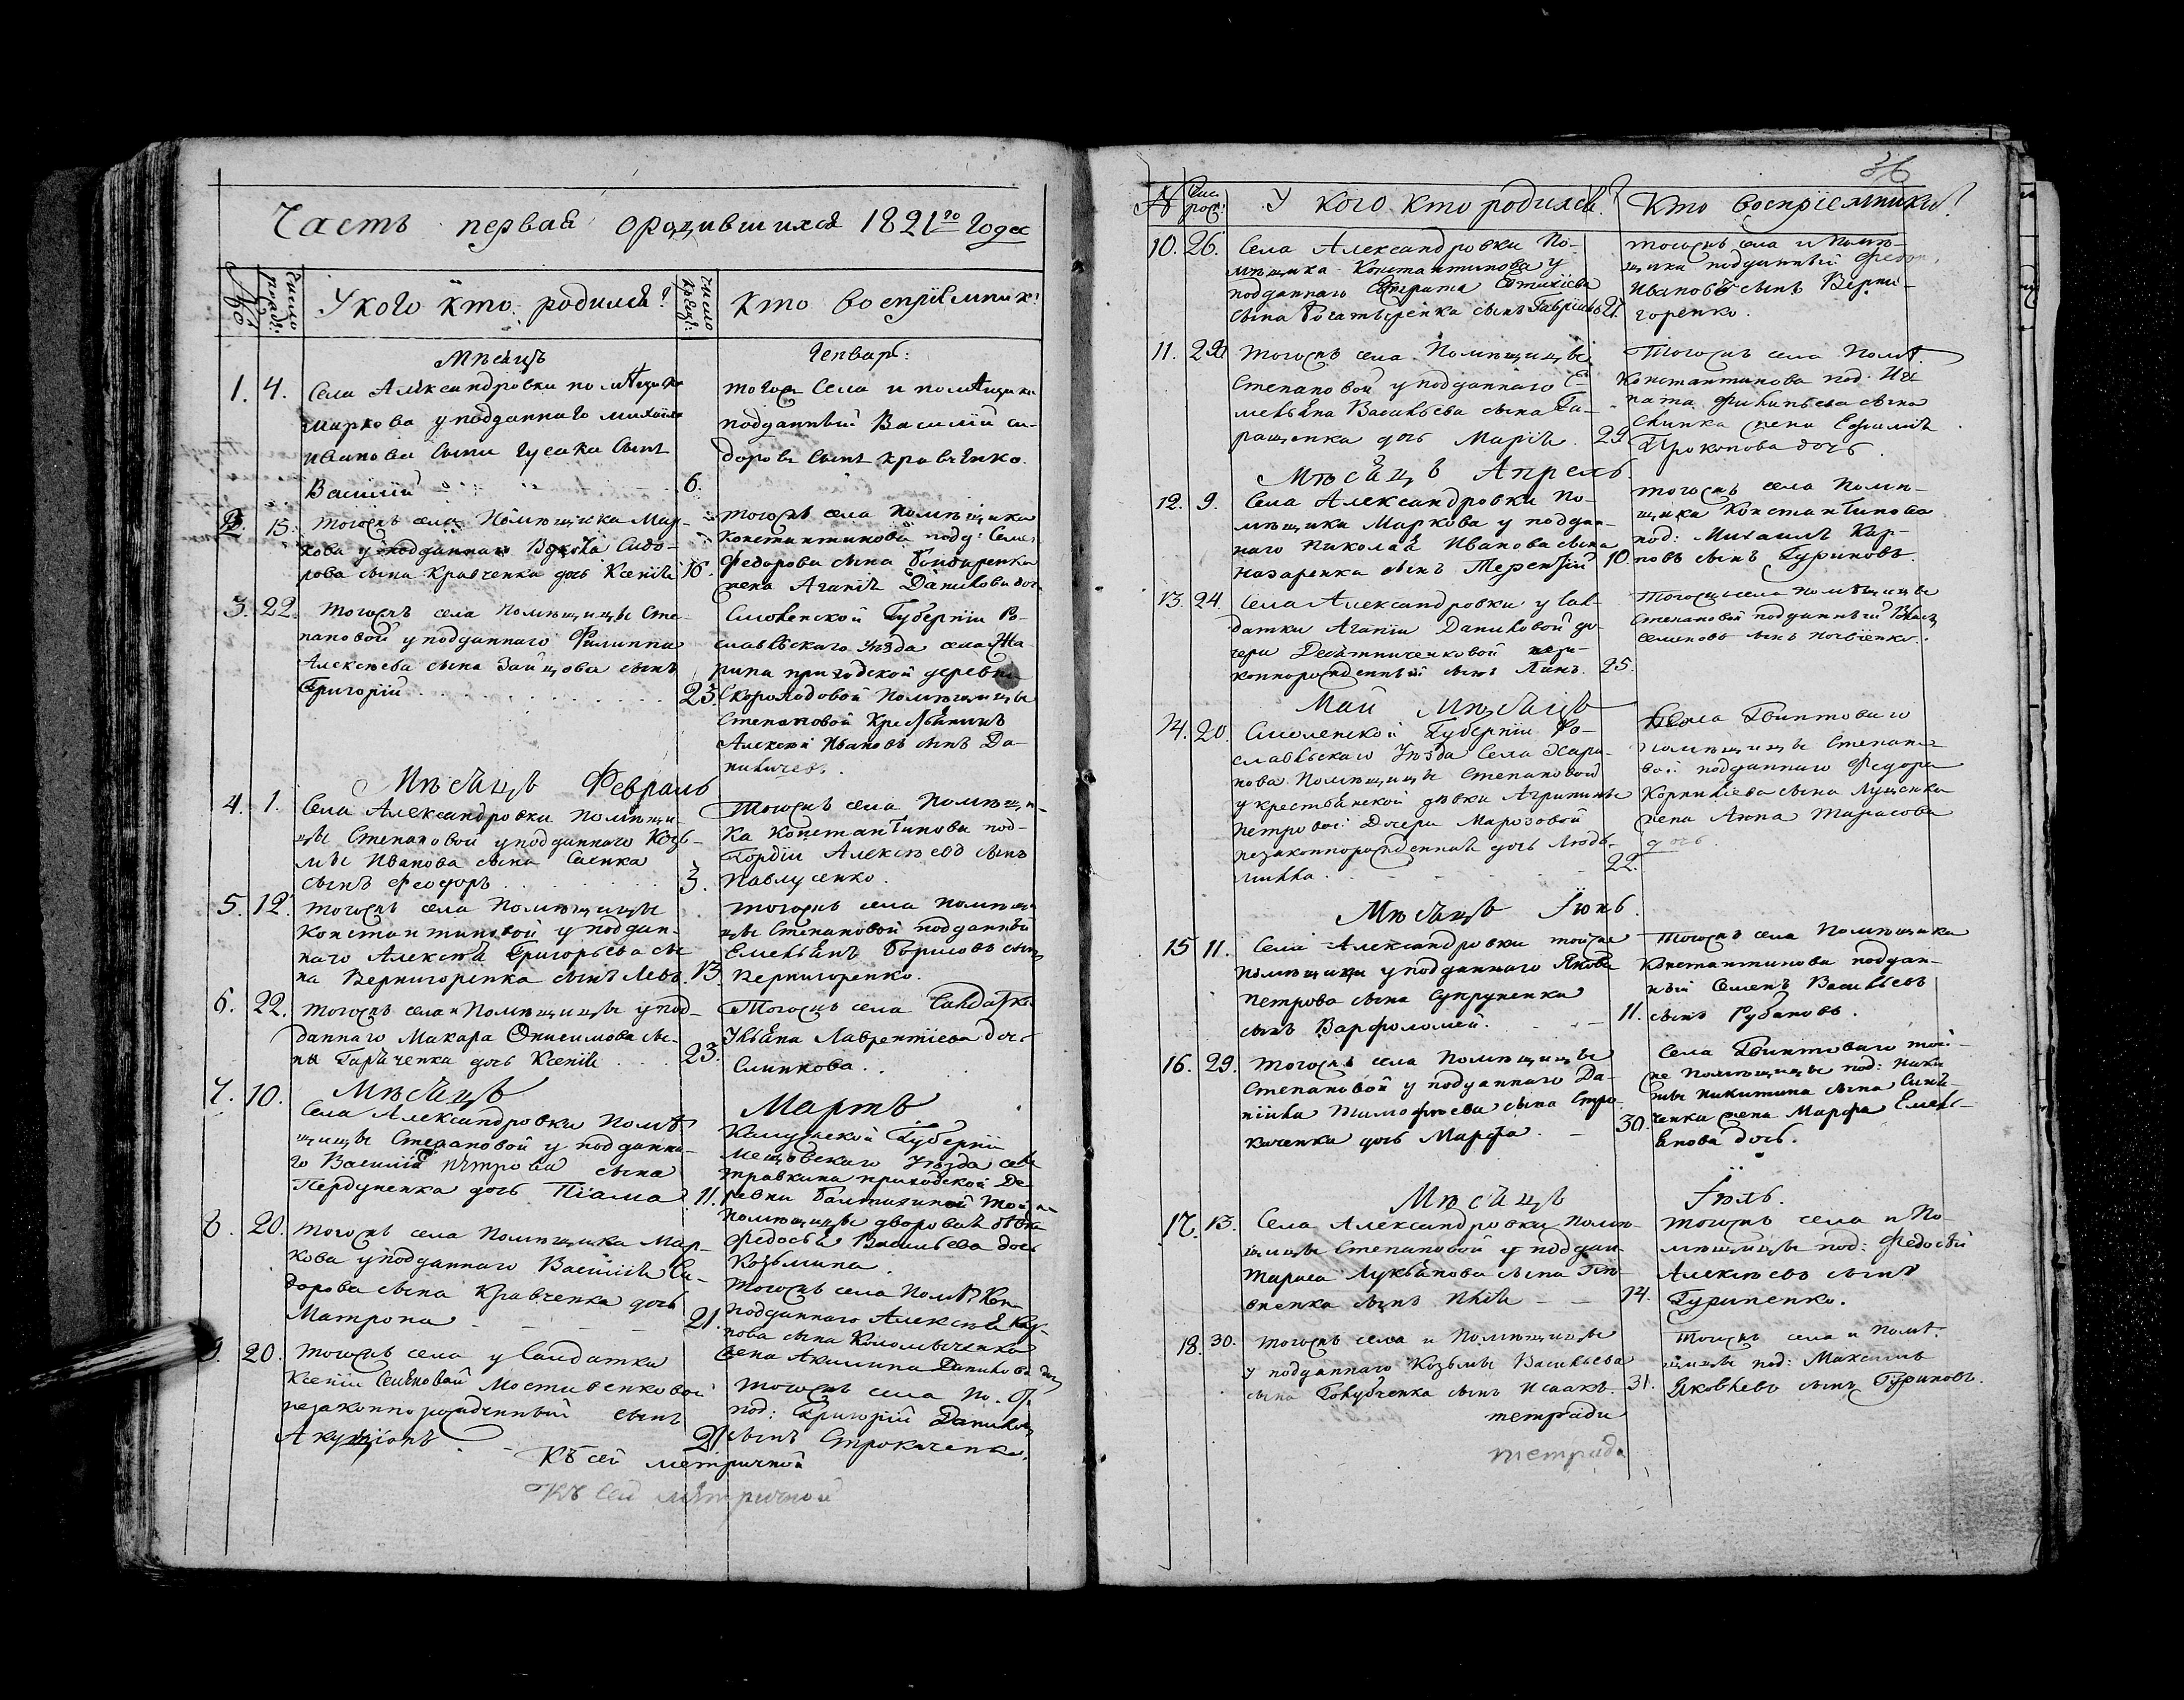 Часть первая ородившихся 1821го Года
№
Число рожд:
Укого кто родился?
Число крещ:
Кто воспріемник?
Мѣсяцъ Генварь:
1. 4. Села Александровки помѣщика
Маркова уподданнаго михайла
иванова сына Гусака сынъ
Василій 6.
тогож Села и помѣщика
подданный Василій си-
доровъ сынъ кравченко.
2. 15. тогожъ села Помѣщика Мар-
кова уподданнаго Сидо-
рова сына Кравченка дочь Ксенія 16.
тогожъ села помѣщика
Константинова подд: Семе:
Федорова сына Бондаренка
жена Агапія Данилова доч.
3. 22. тогожъ села помѣщицы Сте-
пановой уподданнаго Филиппа
Алексѣева сына Зайцова сынъ
Григорій 23.
Смоленской Губерніи Ро-
славльскаго уѣзда села Жа-
рина приходской деревни
Скороходовой Помѣщицы
Степановой Крестьянинъ
Алексѣй Ивановъ сынъ Да-
ниличев.
Мѣсяцъ Февраль
4. 1. Села Александровки Помѣщи-
цы Степановой уподданнаго Козь-
мы Иванова сына Саенка
сынъ Феодоръ 3.
Тогожъ села Помѣщи-
ка Константинова под-
Гордій Алексѣевъ сынъ
Павлусенко.
5. 12. тогожъ села Помѣщицы
Константиновой у поддан-
наго Алексѣя Григорьева сы-
на Вернигоренка сынъ Левъ. 13.
тогожъ села помѣщи
цы Степановой подданный
Емельянъ Борисовъ сынъ
Вернигоренко.
6. 22. тогожъ села и Помѣщицы упод-
даннаго Макара Онисимова сы-
на Горяченка дочь Ксенія 23.
Тогожъ села Салдатка
Ульяна Лаврентіева дочь
Слинкова.
Мѣсяцъ Мартъ
7. 10. Села Александровки Помѣ-
щицы Степановой у подданна-
го Василія Петрова сына
Пердуненка дочь Піама 11.
Калужской Губерніи
Мещовскаго Уѣзда села
травкина приходской Де-
ревни той же
помѣщицы дворовая дѣвка
Федосья Васильева дочь
Козьмина.
8. 20. тогожъ села Помѣщика Мар-
кова уподданнаго Василія Си-
дорова сына Кравченка дочь
Матрона 21.
тогожъ села Помѣ. Кон
подданнаго Алексѣя Кар-
пова сына Коломыченка
жена Акилина Данилова доч
9. 20. тогожъ села у Салдатки
Ксеніи Семеновой Мостивенковой
незаконнорожденный сынъ
21.
тогожъ села по.
под: Григорій Данилов
сынъ Строкаченко.
Къ сей метричной
Къ сей метричной
36
№
Чис. рож:
У кого кто родился?
Кто воспріемники?
10. 26. Села Александровки По-
мѣщика Константинова у
подданнаго Евтихіева
сына Богатыренка сынъ Гавріилъ 27.
тогожъ села и помѣ-
щика подданный Федор
Ивановъ сынъ Верни-
горенко.
11. 29. тогожъ села Помѣщицы
Степановой уподданнаго Е-
мельяна Васильева сына Га-
ращенка дочь Марія. 29.
Тогожъ села Помѣ.
Константинова под. Иг-
ната Филипьева сына
Слинка жена Евфимія
Прокопова дочь.
Мѣсяцъ Апрель.
12. 9. Села Александровки По-
мѣщика Маркова у поддан-
наго Николая Иванова сына
Назаренка сынъ Терентій 10.
тогожъ села помѣ-
щика Константинова
под: Михаилъ Кар-
повъ сынъ Гуриновъ.
13. 24. Села Александровки у Сал-
датки Агапіи Даниловой до-
чери Десятниченковой неза-
коннорожденный сынъ Лина. 25.
Тогожъ села помѣщицы
Степановой подданный
Семеновъ сынъ
Май Мѣсяцъ
14. 20. Смоленской Губерніи Ро-
славльскаго Уѣзда Села Жари-
нова Помѣщицы Степановой
у крестьянской дѣвки Агрипины
Петровой Дочери Марозовой
незаконнорожденная дочь Людь-
милла. 22.
Села Гвинтоваго
помѣщицы Степано-
вой подданнаго Федора
Корниліева сына Луценка
жена Анна Тарасова
дочь.
Мѣсяцъ Іюнь.
15 11. Села Александровки тойже
Помѣщицы уподданнаго Якова
Петрова сына Супруненка
сынъ Варфоломей. 11.
Тогожъ села Помѣщика
Константинова поддан-
ный Семенъ Васильевъ
сынъ Рубановъ.
16. 29. Тогожъ села Помѣщицы
Степановой у подданнаго Да-
ніила Тимофѣева сына Стро-
каченка дочь Марфа. 30.
Села Гвинтоваго той-
же Помѣщицы под: Ники
ты Никитина сына Синя-
ченка жена Марфа Емель-
янова дочь.
Мѣсяцъ Іюль.
17. 13. Села Александровки помѣ-
щицы Степановой у поддан-
Тараса Лукьянова сына
сынъ Илія 14.
тогожъ села и По-
мѣщицы под: Федосѣй
Алексѣевъ сынъ
Гуриненко.
18. 30. тогожъ села и Помѣщицы
у подданнаго Козьмы Васильева
сына Голубченка сынъ Исаакъ. 31.
Тогожъ села и помѣ-
щицы под: Максимъ
Яковлевъ сынъ Гуриновъ.
тетради
тетрадь